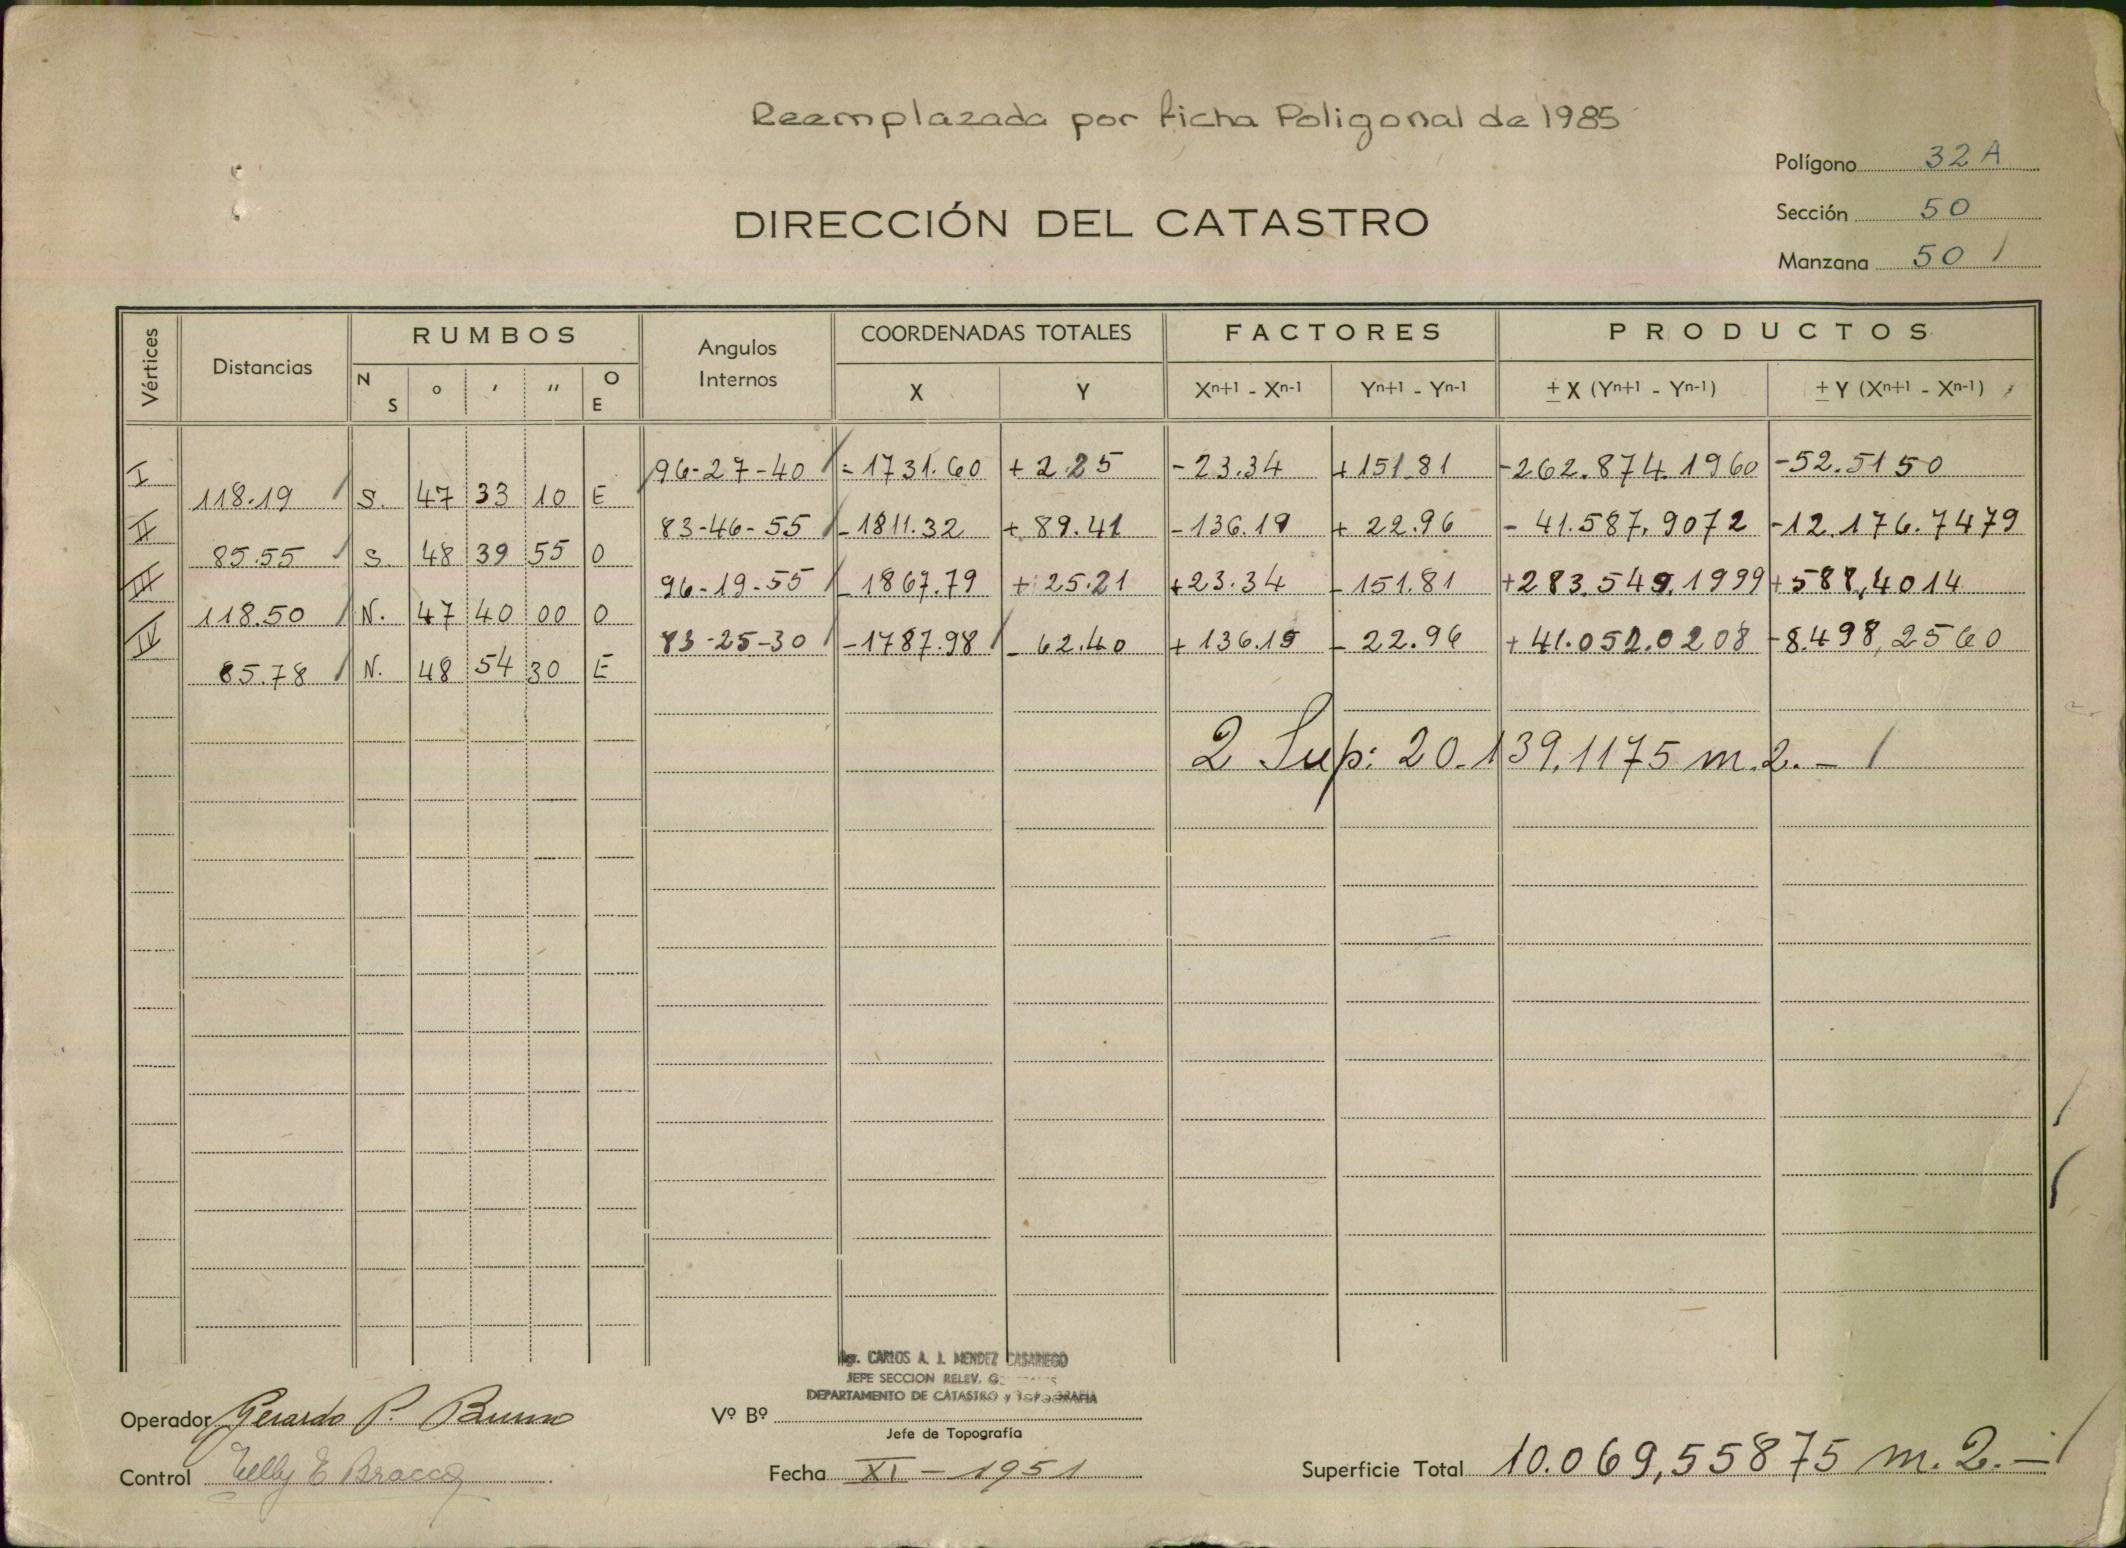 Reemplazada por ficha Poligonal de 1985
Polígono 32 A
DIRECCIÓN DEL CATASTRO
Sección 50
Manzana 501
Vértices
Distancias
RUMBOS
N S
o ' "
O E
Angulos Internos
COORDENADAS TOTALES
X Y
FACTORES
Xn+1 - Xn-1 Yn+1 - Yn-1
PRODUCTOS
± X (Yn+1 - Yn-1) ± Y (Xn+1 - Xn-1)
I 96-27-40 - 1731.60 + 2.25 - 23.34 + 151.81 - 262.874.1960 - 52.5150
118.19 S. 47 33 10 E
II 83-46-55 - 1811.32 + 89.41 - 136.19 + 22.96 - 41.587,9072 - 12.176.7479
85.55 S. 48 39 55 O
III 96-19-55 - 1867.79 + 25.21 + 23.34 - 151.81 + 283.549.1999 + 588,4014
118.50 N. 47 40 00 O
IV 83-25-30 - 1787.98 - 62.40 + 136.19 - 22.96 + 41.052.0208 - 8.498,2560
85.78 N. 48 54 30 E
2 Sup: 20.139,1175 m.2.-
Ar. CARLOS A. J. MENDEZ CASARIEGO
JEFE SECCION RELEV.
DEPARTAMENTO DE CATASTRO y TOPOGRAFIA
Operador Gerardo P. Bruno
Vº Bº
Jefe de Topografía
Control Nelly E Bracco
Fecha XI - 1951
Superficie Total 10.069,55875 m.2.-